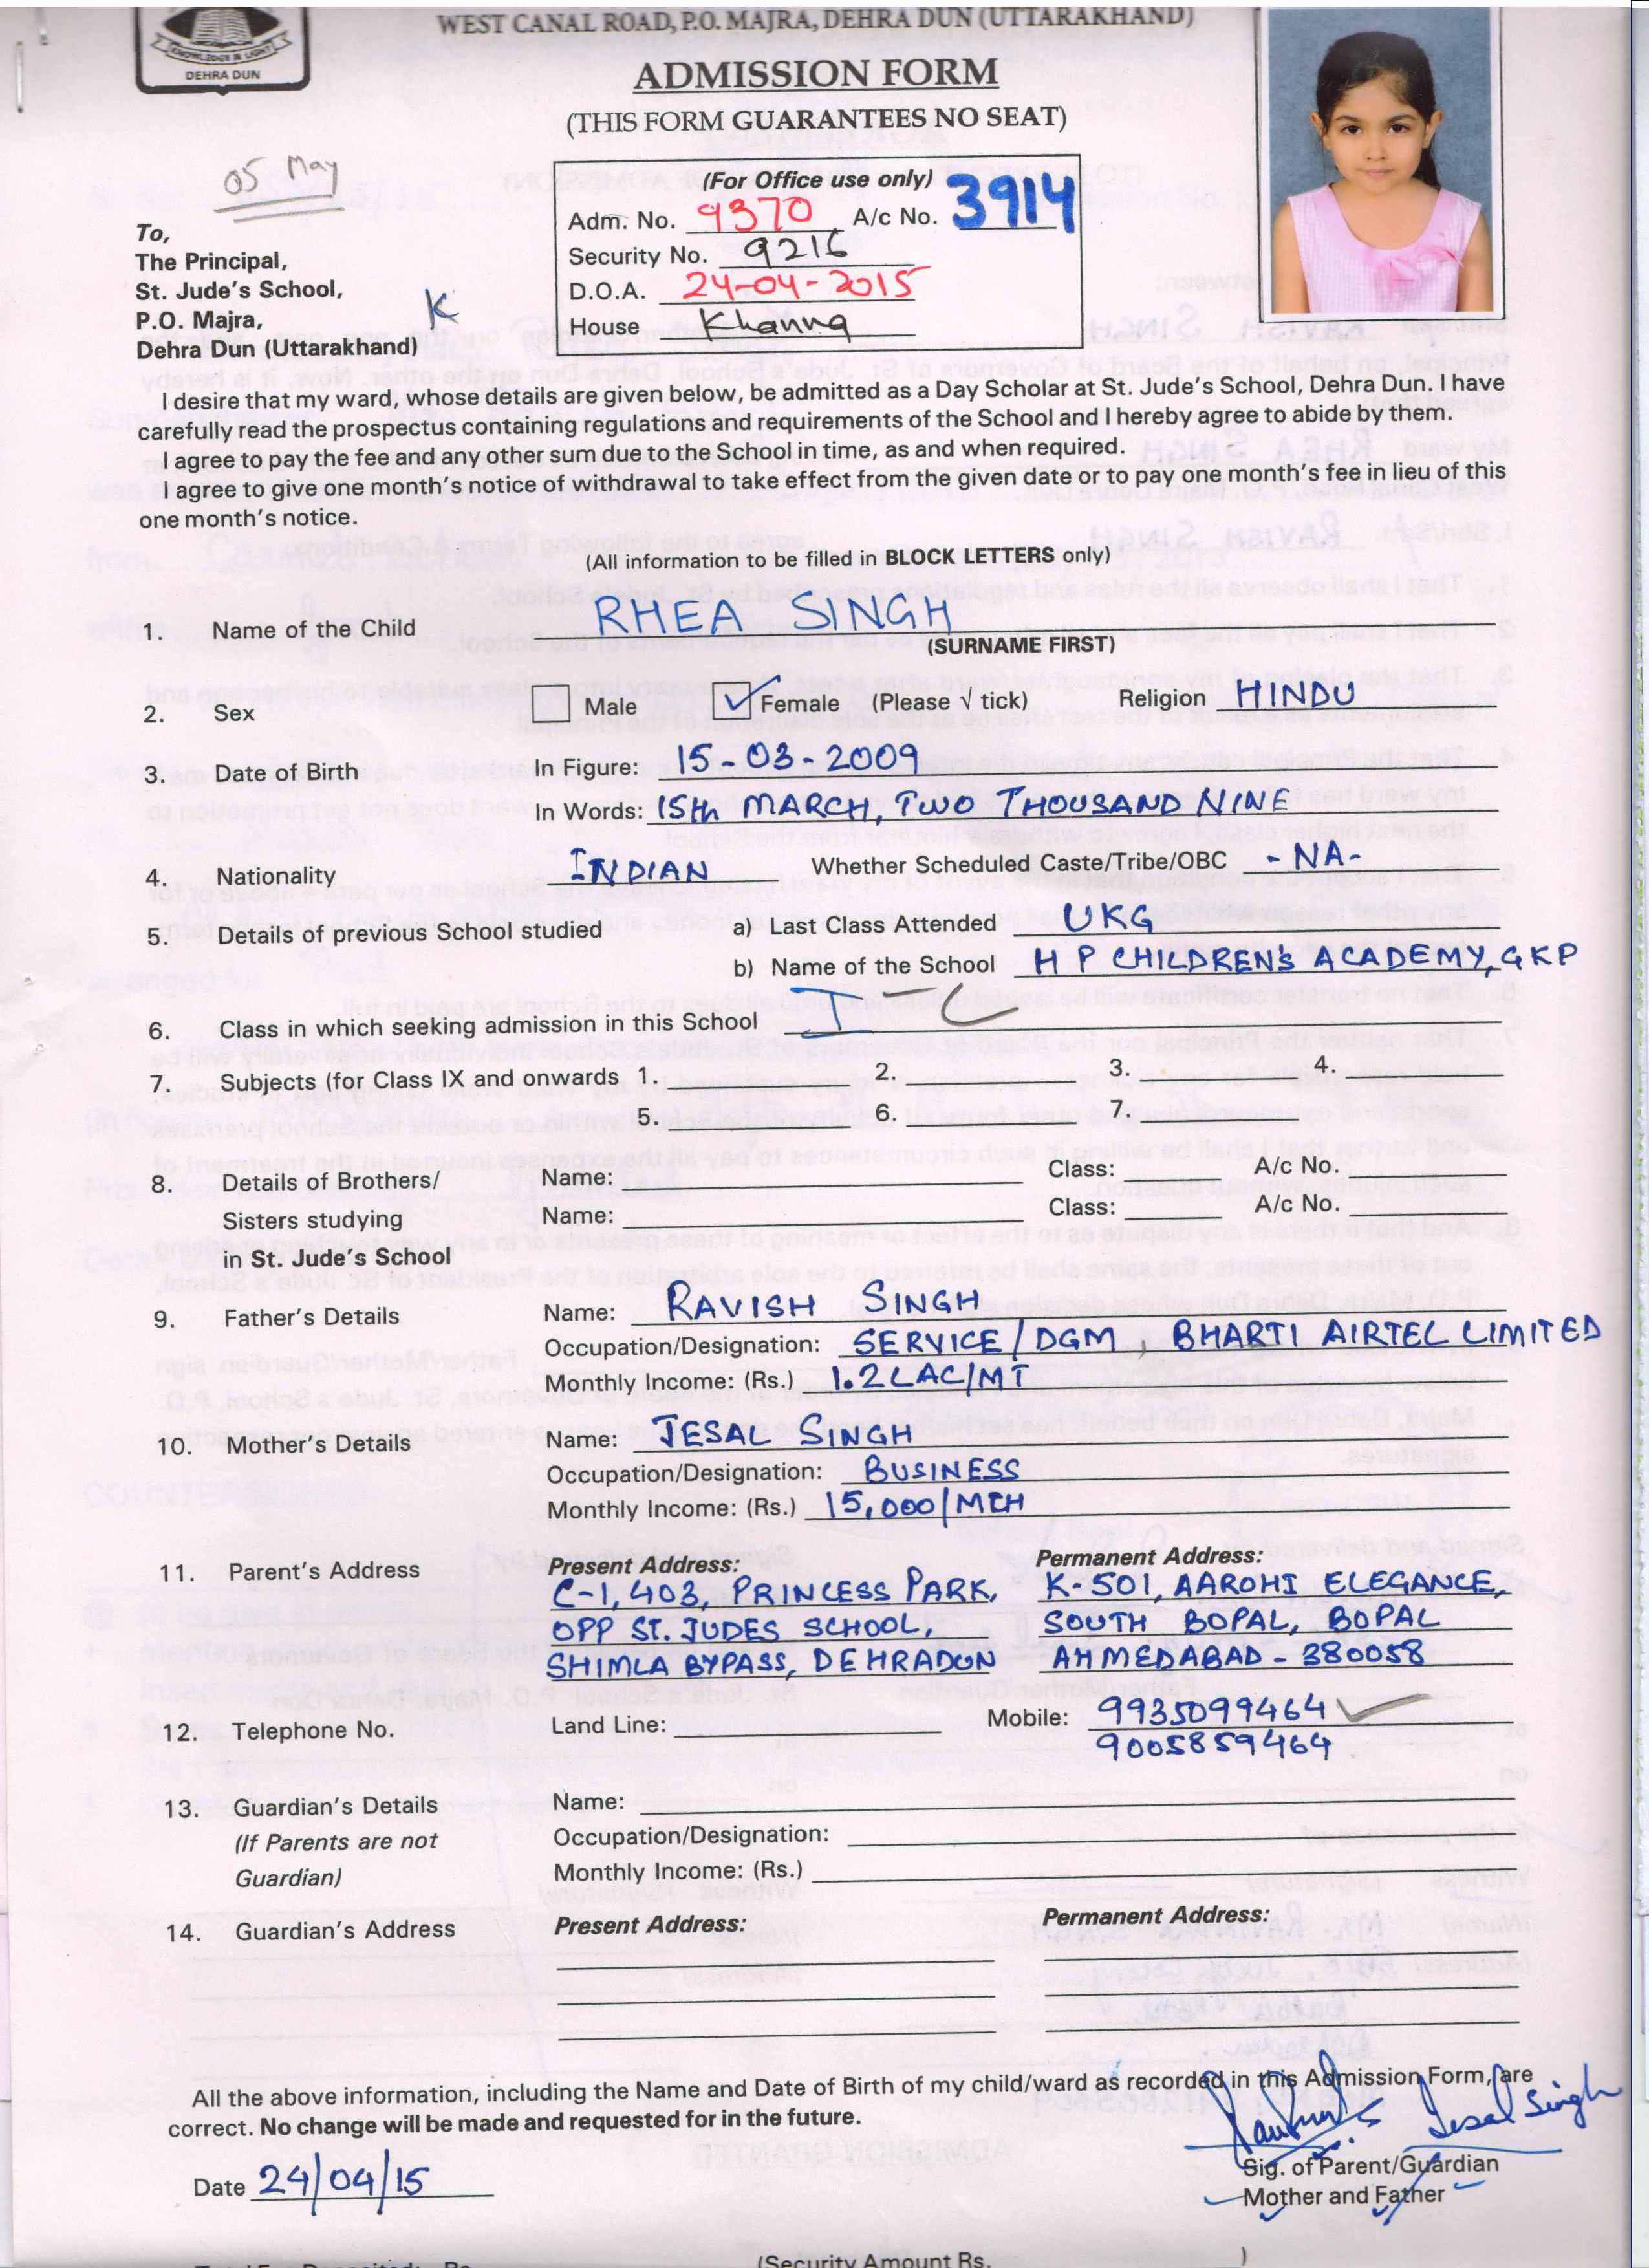 WEST CANAL ROAD, P.O. MAJRA, DEHRA DUN (UTTARAKHAND)
KNOWLEDGE IS LIGHT
DEHRA DUN
ADMISSION FORM
(THIS FORM GUARANTEES NO SEAT)
05 May
(For Office use only)
Adm. No. 9370 A/c No. 3914
Security No. 9216
D.O.A. 24-04-2015
House Khanna
To,
The Principal,
St. Jude's School,
P.O. Majra,
Dehra Dun (Uttarakhand)
K
I desire that my ward, whose details are given below, be admitted as a Day Scholar at St. Jude's School, Dehra Dun. I have
carefully read the prospectus containing regulations and requirements of the School and I hereby agree to abide by them.
I agree to pay the fee and any other sum due to the School in time, as and when required.
I agree to give one month's notice of withdrawal to take effect from the given date or to pay one month's fee in lieu of this
one month's notice.
(All information to be filled in BLOCK LETTERS only)
1. Name of the Child RHEA SINGH
(SURNAME FIRST)
2. Sex Male Female (Please √ tick) Religion HINDU
3. Date of Birth In Figure: 15-03-2009
In Words: 15th MARCH, TWO THOUSAND NINE
4. Nationality INDIAN Whether Scheduled Caste/Tribe/OBC -NA-
5. Details of previous School studied a) Last Class Attended UKG
b) Name of the School H P CHILDREN'S ACADEMY, GKP
6. Class in which seeking admission in this School I - C
7. Subjects (for Class IX and onwards 1. 2. 3. 4.
5. 6. 7.
8. Details of Brothers/ Name: Class: A/c No.
Sisters studying Name: Class: A/c No.
in St. Jude's School
9. Father's Details Name: RAVISH SINGH
Occupation/Designation: SERVICE/DGM, BHARTI AIRTEL LIMITED
Monthly Income: (Rs.) 1.2 LAC/MT
10. Mother's Details Name: JESAL SINGH
Occupation/Designation: BUSINESS
Monthly Income: (Rs.) 15,000/MTH
11. Parent's Address Present Address: Permanent Address:
C-1, 403, PRINCESS PARK, K-501, AAROHI ELEGANCE,
OPP ST. JUDES SCHOOL, SOUTH BOPAL, BOPAL
SHIMLA BYPASS, DEHRADUN AHMEDABAD - 380058
12. Telephone No. Land Line: Mobile: 9935099464
9005859464
13. Guardian's Details Name:
(If Parents are not Occupation/Designation:
Guardian) Monthly Income: (Rs.)
14. Guardian's Address Present Address: Permanent Address:
All the above information, including the Name and Date of Birth of my child/ward as recorded in this Admission Form, are
correct. No change will be made and requested for in the future.
Jesal Singh
Date 24/04/15
Sig. of Parent/Guardian
Mother and Father
(Security Amount Rs. )